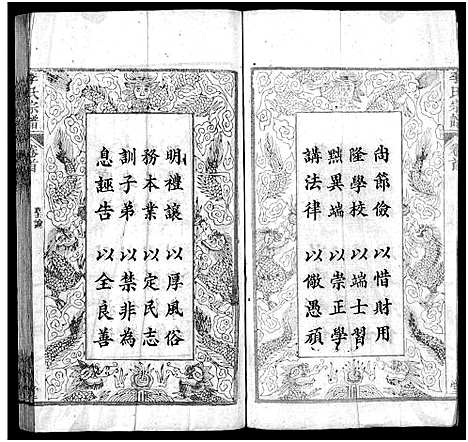 尚節儉 以惜財用
隆學校 以端士習
黜異端 以崇正學
講法律 以儆愚頑
明禮讓 以厚風俗
務本業 以定民志
訓子弟 以禁非為
息誣告 以全良善
李氏宗譜
卷首
聖諭